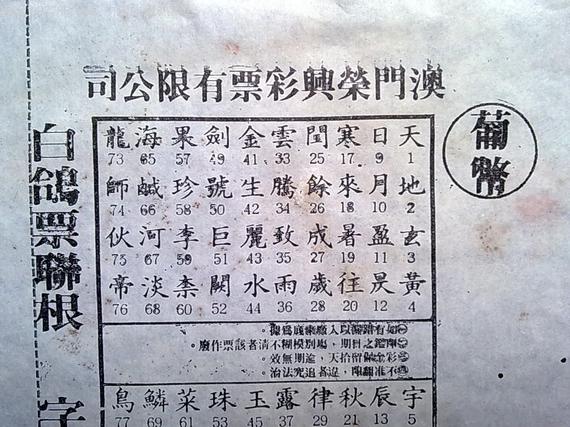 澳門榮興彩票有限公司
葡幣
天 日 寒 閏 雲 金 劍 果 海 龍
1 9 17 25 33 41 49 57 65 73
地 月 來 餘 騰 生 號 珍 鹹 師
2 10 18 26 34 42 50 58 66 74
玄 盈 暑 成 致 麗 巨 李 河 伙
3 11 19 27 35 43 51 59 67 75
黃 昃 往 歲 雨 水 闕 柰 淡 帝
4 12 20 28 36 44 52 60 68 76
如有錯漏以入廠票底為據。
印鑑之日期,塲別模糊不清者該票作廢。
彩金保留拾天,逾期無效。
不准翻印,違者追究法治。
宇 辰 秋 律 露 玉 珠 菜 鱗 鳥
5 13 21 29 37 45 53 61 69 77
白鴿票聯根
字